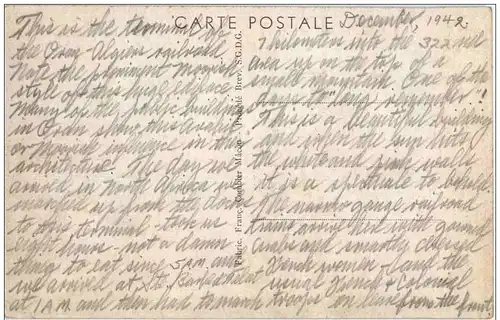 CARTE POSTALE
December, 1942
This is the terminal of
the Oran-Algiers railroad.
Note the prominent Moorish
style of this huge edifice.
Many of the public buildings
in Oran show this Arabic
or Moorish influence in their
architecture. The day we
arrived in North Africa we
marched up from the docks
to this terminal - took us
eight hours - not a damn
thing to eat since 5 A.M. and
we arrived at St.
at 1 A.M. and then had to march
7 kilometers into the 322nd
area up on the top of a
small mountain. One of the
days to "long remember"!
This is a beautiful building
and when the sun hits
the white and pink walls
it is a spectacle to behold.
The narrow gauge railroad
trains arrive here with
Arabs and smartly dressed
French women - and the
usual French & Colonial
troops on leave from the front.
Fabric. Franç. Combier Mâcon - Procédé Brev. S.G.D.G.